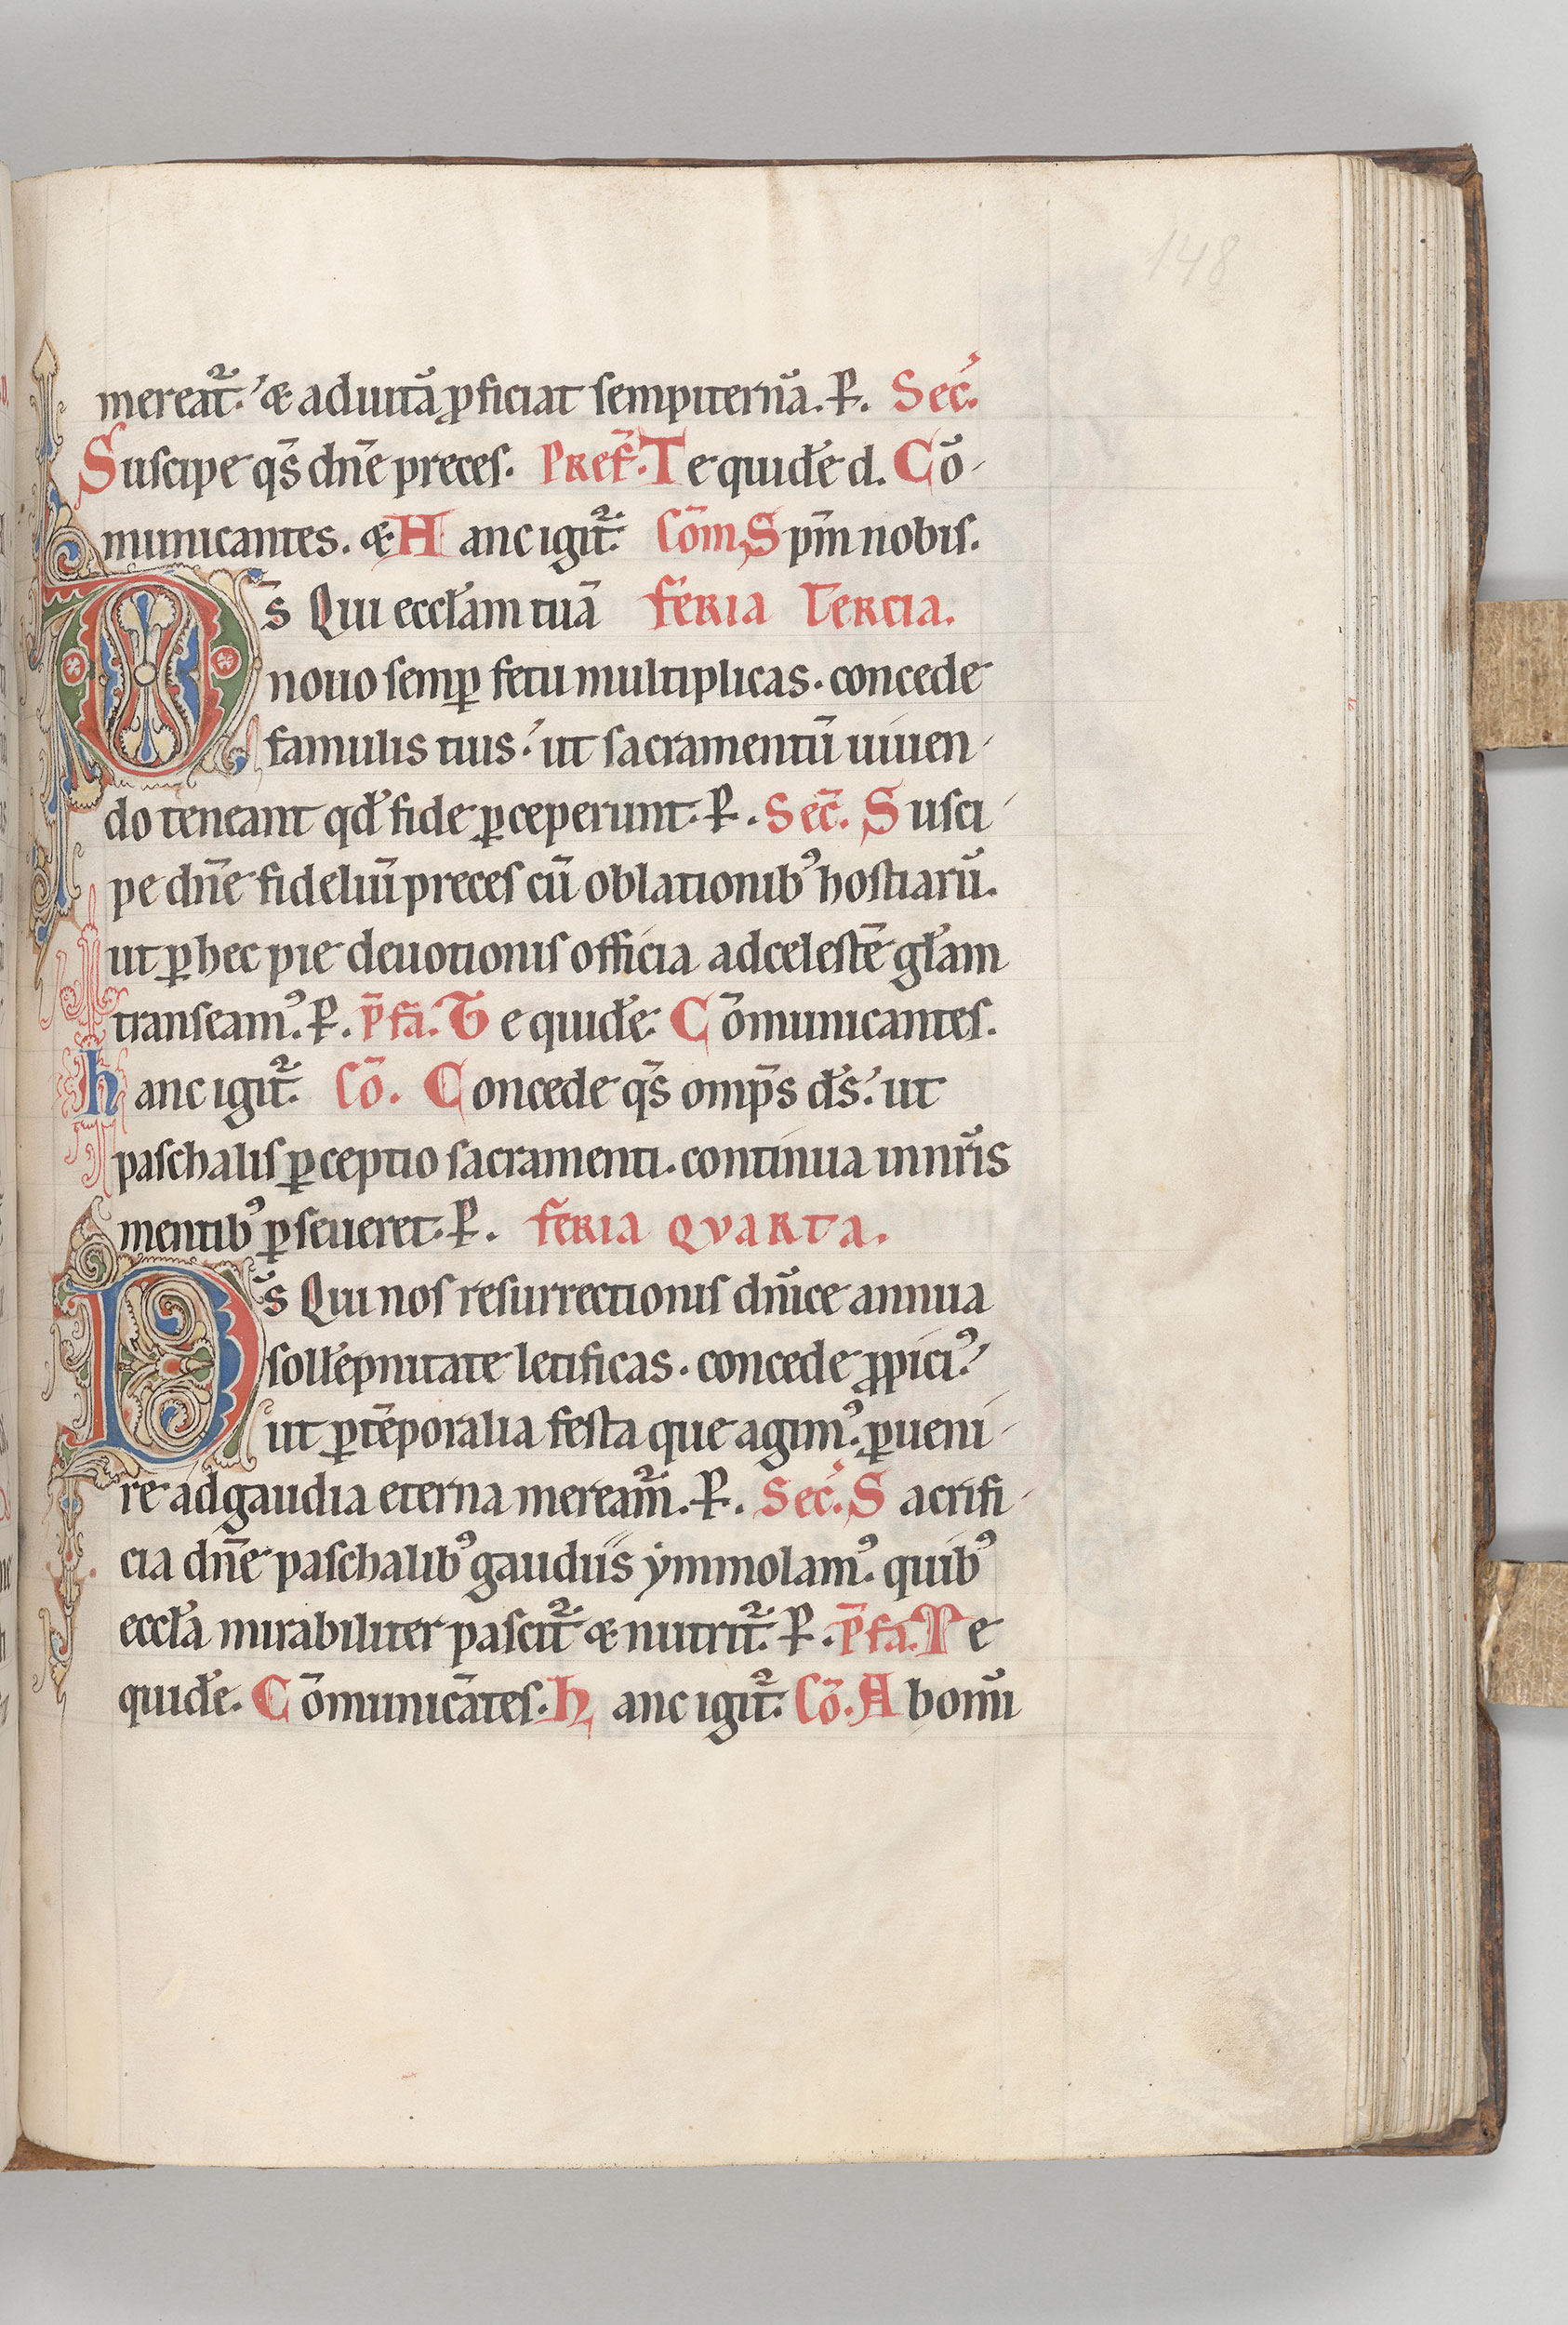 148
mereat᷑. ⁊ ad uitā ꝓficiat sempiternā. P̶. Sec̄.
Suscipe qs̄ dn̄e preces. Pref̄. Te quidē d. Cō-
municantes. & Hanc igit᷑. Cōm. S pm̄ nobis.
Ds̄ Qui eccl̄am tuā feria Tercia.
nouo semꝑ fetu multiplicas. concede
famulis tuis. ut sacramentū uiuen-
do teneant qd̄ fide ꝑceperunt. P̶. Sec̄. Susci-
pe dn̄e fideliū preces cū oblationibꝰ hostiarū.
ut ꝑ hec pie deuotionis officia ad celestē gl̄am
transeamꝰ. P̶. p̄fā. Te quidē. Cōmunicantes.
hanc igit᷑. Cō. Concede qs̄ omp̄s ds̄. ut
paschalis ꝑceptio sacramenti. continua in nr̄is
mentibꝰ ꝑseueret. P̶. feria qvarta.
Ds̄ Qui nos resurrectionis dn̄ice annua
sollēpnitate letificas. concede ꝓpiciꝰ.
ut ꝑ tēporalia festa que agimꝰ. ꝑueni-
re ad gaudia eterna meream᷑. P̶. Sec̄. Sacrifi-
cia dn̄e paschalibꝰ gaudiis ymmolamꝰ. quibꝰ
eccl̄a mirabiliter pascit᷑ & nutrit᷑. P̶. p̄fa. Te
quidē. Cōmunicātes. hanc igit᷑. Cō. Ab omī